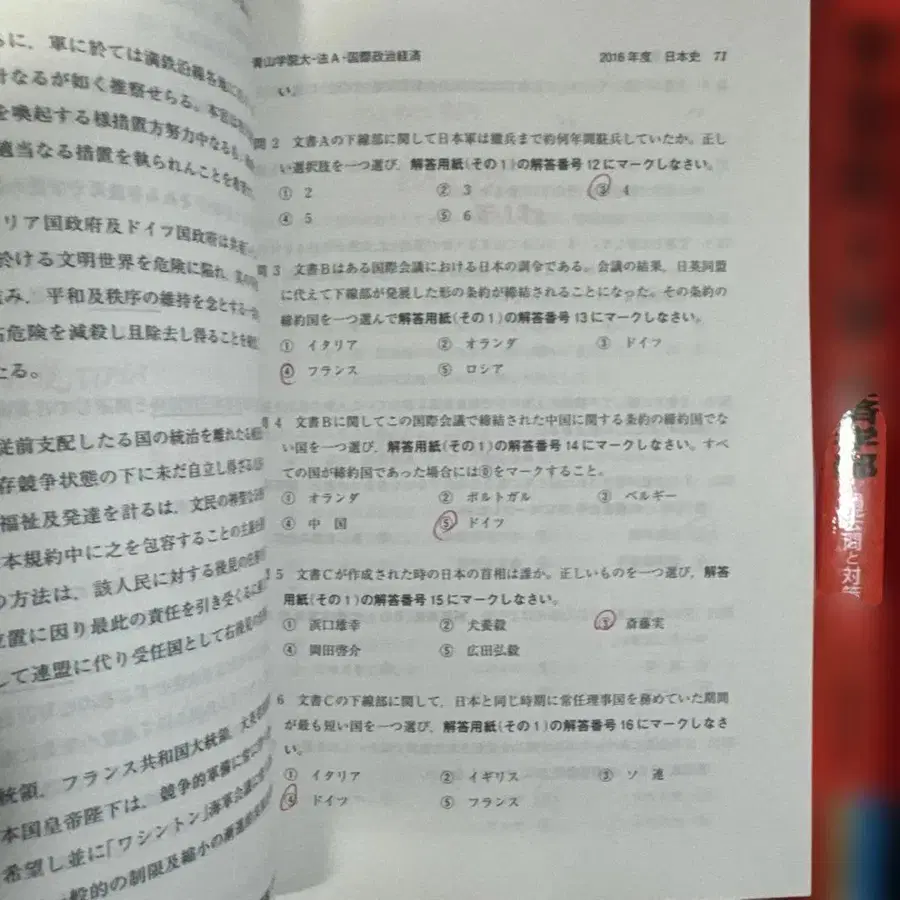 に、軍に於ては満鉄沿線各地に
なるが如く推察せらる。本官は
を喚起する様措置方努力中なるも
適当なる措置を執られんことを希
リア国政府及ドイツ国政府は
於ける文明世界を危険に陥れ
み、平和及秩序の維持を念とする
危険を減殺し且除去し得ることを
たる。
従前支配したる国の統治を離れたる
存競争状態の下に未だ自立し得ざる
福祉及発達を計るは、文民の神聖なる
本規約中に之を包容することの主義
の方法は、該人民に対する後見の任務
位置に因り最此の責任を引き受くるに
して連盟に代り受任国として右後見の
統領、フランス共和国大統領
本国皇帝陛下は、競争的軍備に
希望し並に「ワシントン」海軍会議に
般的の制限及縮小の漸進的
青山学院大-法A・国際政治経済
2016年度 日本史 77
い。
問2 文書Aの下線部に関して日本軍は撤兵まで約何年間駐兵していたか。正し
い選択肢を一つ選び、解答用紙(その1)の解答番号12にマークしなさい。
① 2 ② 3 ③ 4
④ 5 ⑤ 6
問3 文書Bはある国際会議における日本の訓令である。会議の結果、日英同盟
に代えて下線部が発展した形の条約が締結されることになった。その条約の
締約国を一つ選んで解答用紙(その1)の解答番号13にマークしなさい。
① イタリア ② オランダ ③ ドイツ
④ フランス ⑤ ロシア
4 文書Bに関してこの国際会議で締結された中国に関する条約の締約国でな
い国を一つ選び、解答用紙(その1)の解答番号14にマークしなさい。すべ
ての国が締約国であった場合には⓪をマークすること。
① オランダ ② ポルトガル ③ ベルギー
④ 中国 ⑤ ドイツ
5 文書Cが作成された時の日本の首相は誰か。正しいものを一つ選び、解答
用紙(その1)の解答番号15にマークしなさい。
① 浜口雄幸 ② 犬養毅 ③ 斎藤実
④ 岡田啓介 ⑤ 広田弘毅
6 文書Cの下線部に関して、日本と同じ時期に常任理事国を務めていた期間
が最も短い国を一つ選び、解答用紙(その1)の解答番号16にマークしなさ
い。
① イタリア ② イギリス ③ ソ連
④ ドイツ ⑤ フランス
過去問と対策